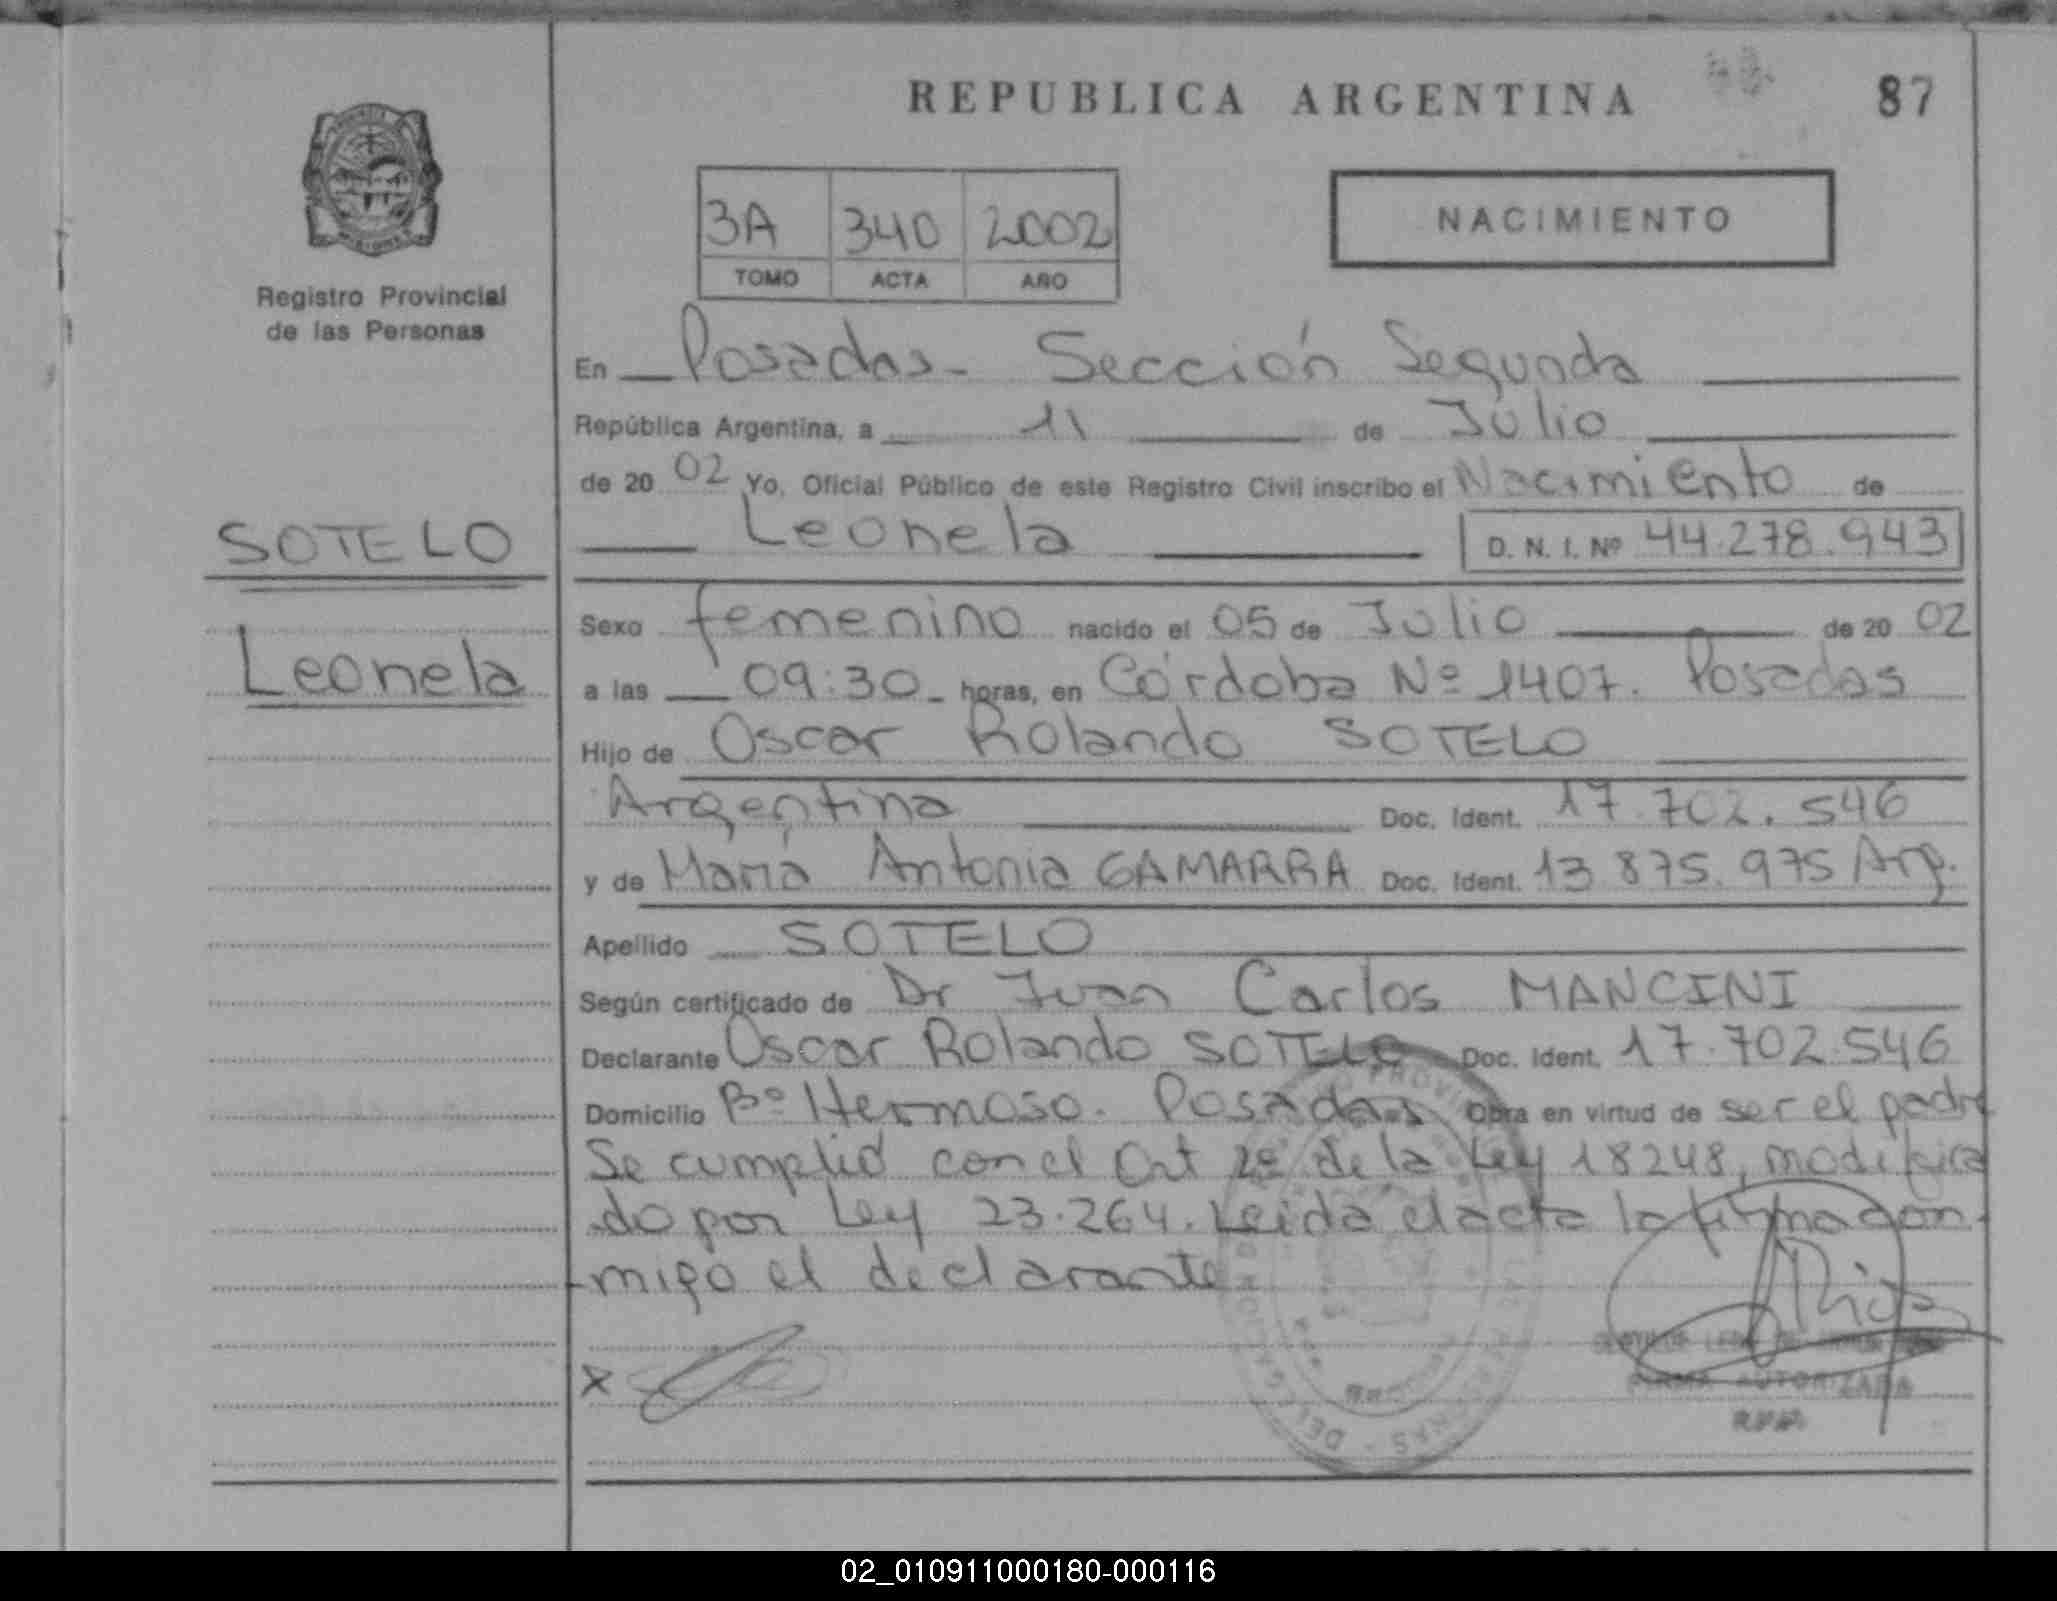 REPUBLICA ARGENTINA
87
3A 340 2002
TOMO ACTA AÑO
NACIMIENTO
Registro Provincial
de las Personas
En Posadas - Sección Segunda
República Argentina, a 11 de Julio
de 20 02 Yo, Oficial Público de este Registro Civil inscribo el Nacimiento de
SOTELO
Leonela D. N. I. Nº 44.278.943
Sexo femenino nacido el 05 de Julio de 20 02
Leonela
a las 09:30 horas, en Córdoba Nº 1407. Posadas
Hijo de Oscar Rolando SOTELO
Argentina Doc. Ident. 17.702.546
y de María Antonia GAMARRA Doc. Ident. 13.875.975 Arg.
Apellido SOTELO
Según certificado de Dr Juan Carlos MANCINI
Declarante Oscar Rolando SOTELO Doc. Ident. 17.702.546
Domicilio Bº Hermoso. Posadas Obra en virtud de ser el padre
Se cumplió con el Art 2º de la Ley 18248, modifica
do por Ley 23.264. Leida el acta la firma con
migo el declarante
X
FIRMA AUTORIZADA
02_010911000180-000116